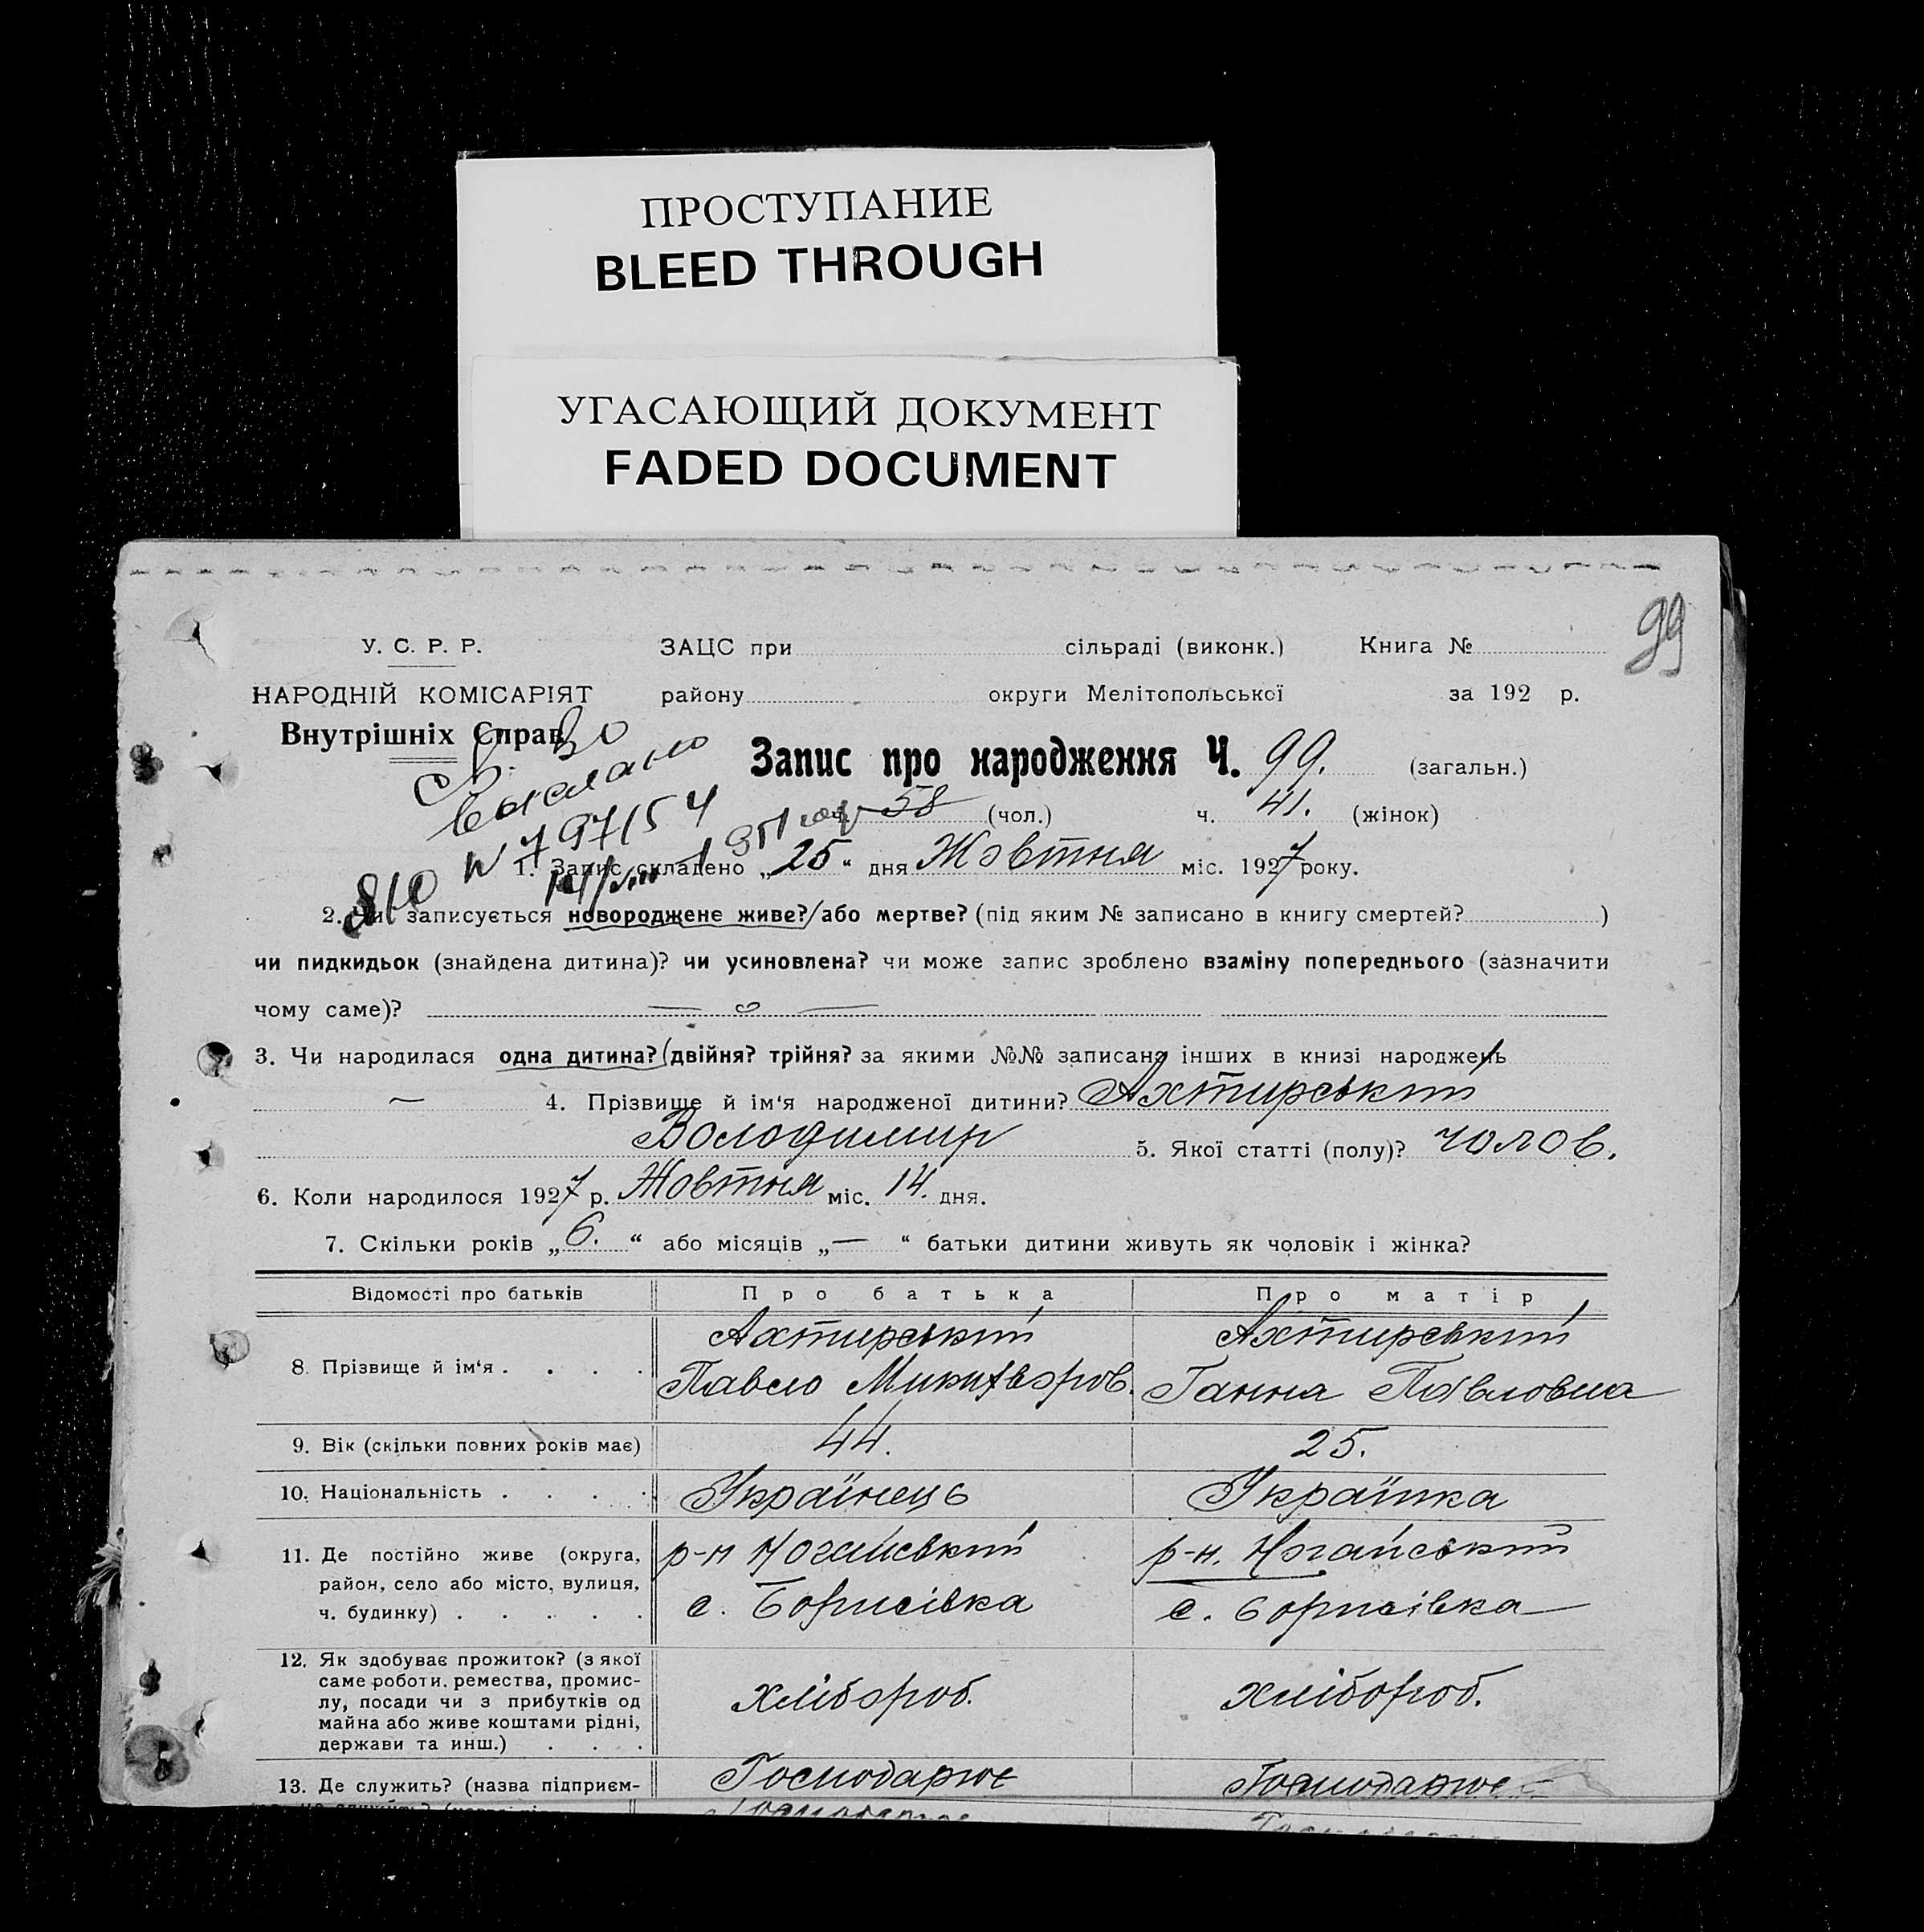 ПРОСТУПАНИЕ
BLEED THROUGH
УГАСАЮЩИЙ ДОКУМЕНТ
FADED DOCUMENT
99
У. С. Р. Р. ЗАЦС при сільраді (виконк.) Книга №
НАРОДНІЙ КОМІСАРІЯТ району округи Мелітопольської за 192 р.
Внутрішніх Справ
Запис про народження Ч. 99. (загальн.)
выслано
58 (чол.) ч. 41. (жінок)
1. Запис складено „25“ дня Жовтня міс. 1927 року.
2. Чи записується новороджене живе? або мертве? (під яким № записано в книгу смертей? )
чи пидкидьок (знайдена дитина)? чи усиновлена? чи може запис зроблено взаміну попереднього (зазначити
чому саме)? —
3. Чи народилася одна дитина? (двійня? трійня? за якими №№ записано інших в книзі народжень
— 4. Прізвище й ім‘я народженої дитини? Ахтирський
Володимир 5. Якої статті (полу)? чолов.
6. Коли народилося 1927 р. Жовтня міс. 14. дня.
7. Скільки років „6.“ або місяців „—“ батьки дитини живуть як чоловік і жінка?
Відомості про батьків Про батька Про матір
Ахтирський Ахтирський
8. Прізвище й ім‘я . . . . Павло Микифоров. Ганна Павловна
9. Вік (скільки повних років має) 44. 25.
10. Національність . . . . Українець Українка
11. Де постійно живе (округа, р-н Ногайський р-н. Ногайський
район, село або місто, вулиця, с. Борисівка с. Борисівка
ч. будинку) . . . . .
12. Як здобуває прожиток? (з якої
саме роботи, ремества, промис-
лу, посади чи з прибутків од хлібороб. хлібороб.
майна або живе коштами рідні,
держави та инш.) . . .
13. Де служить? (назва підприєм- Господарює Господарює